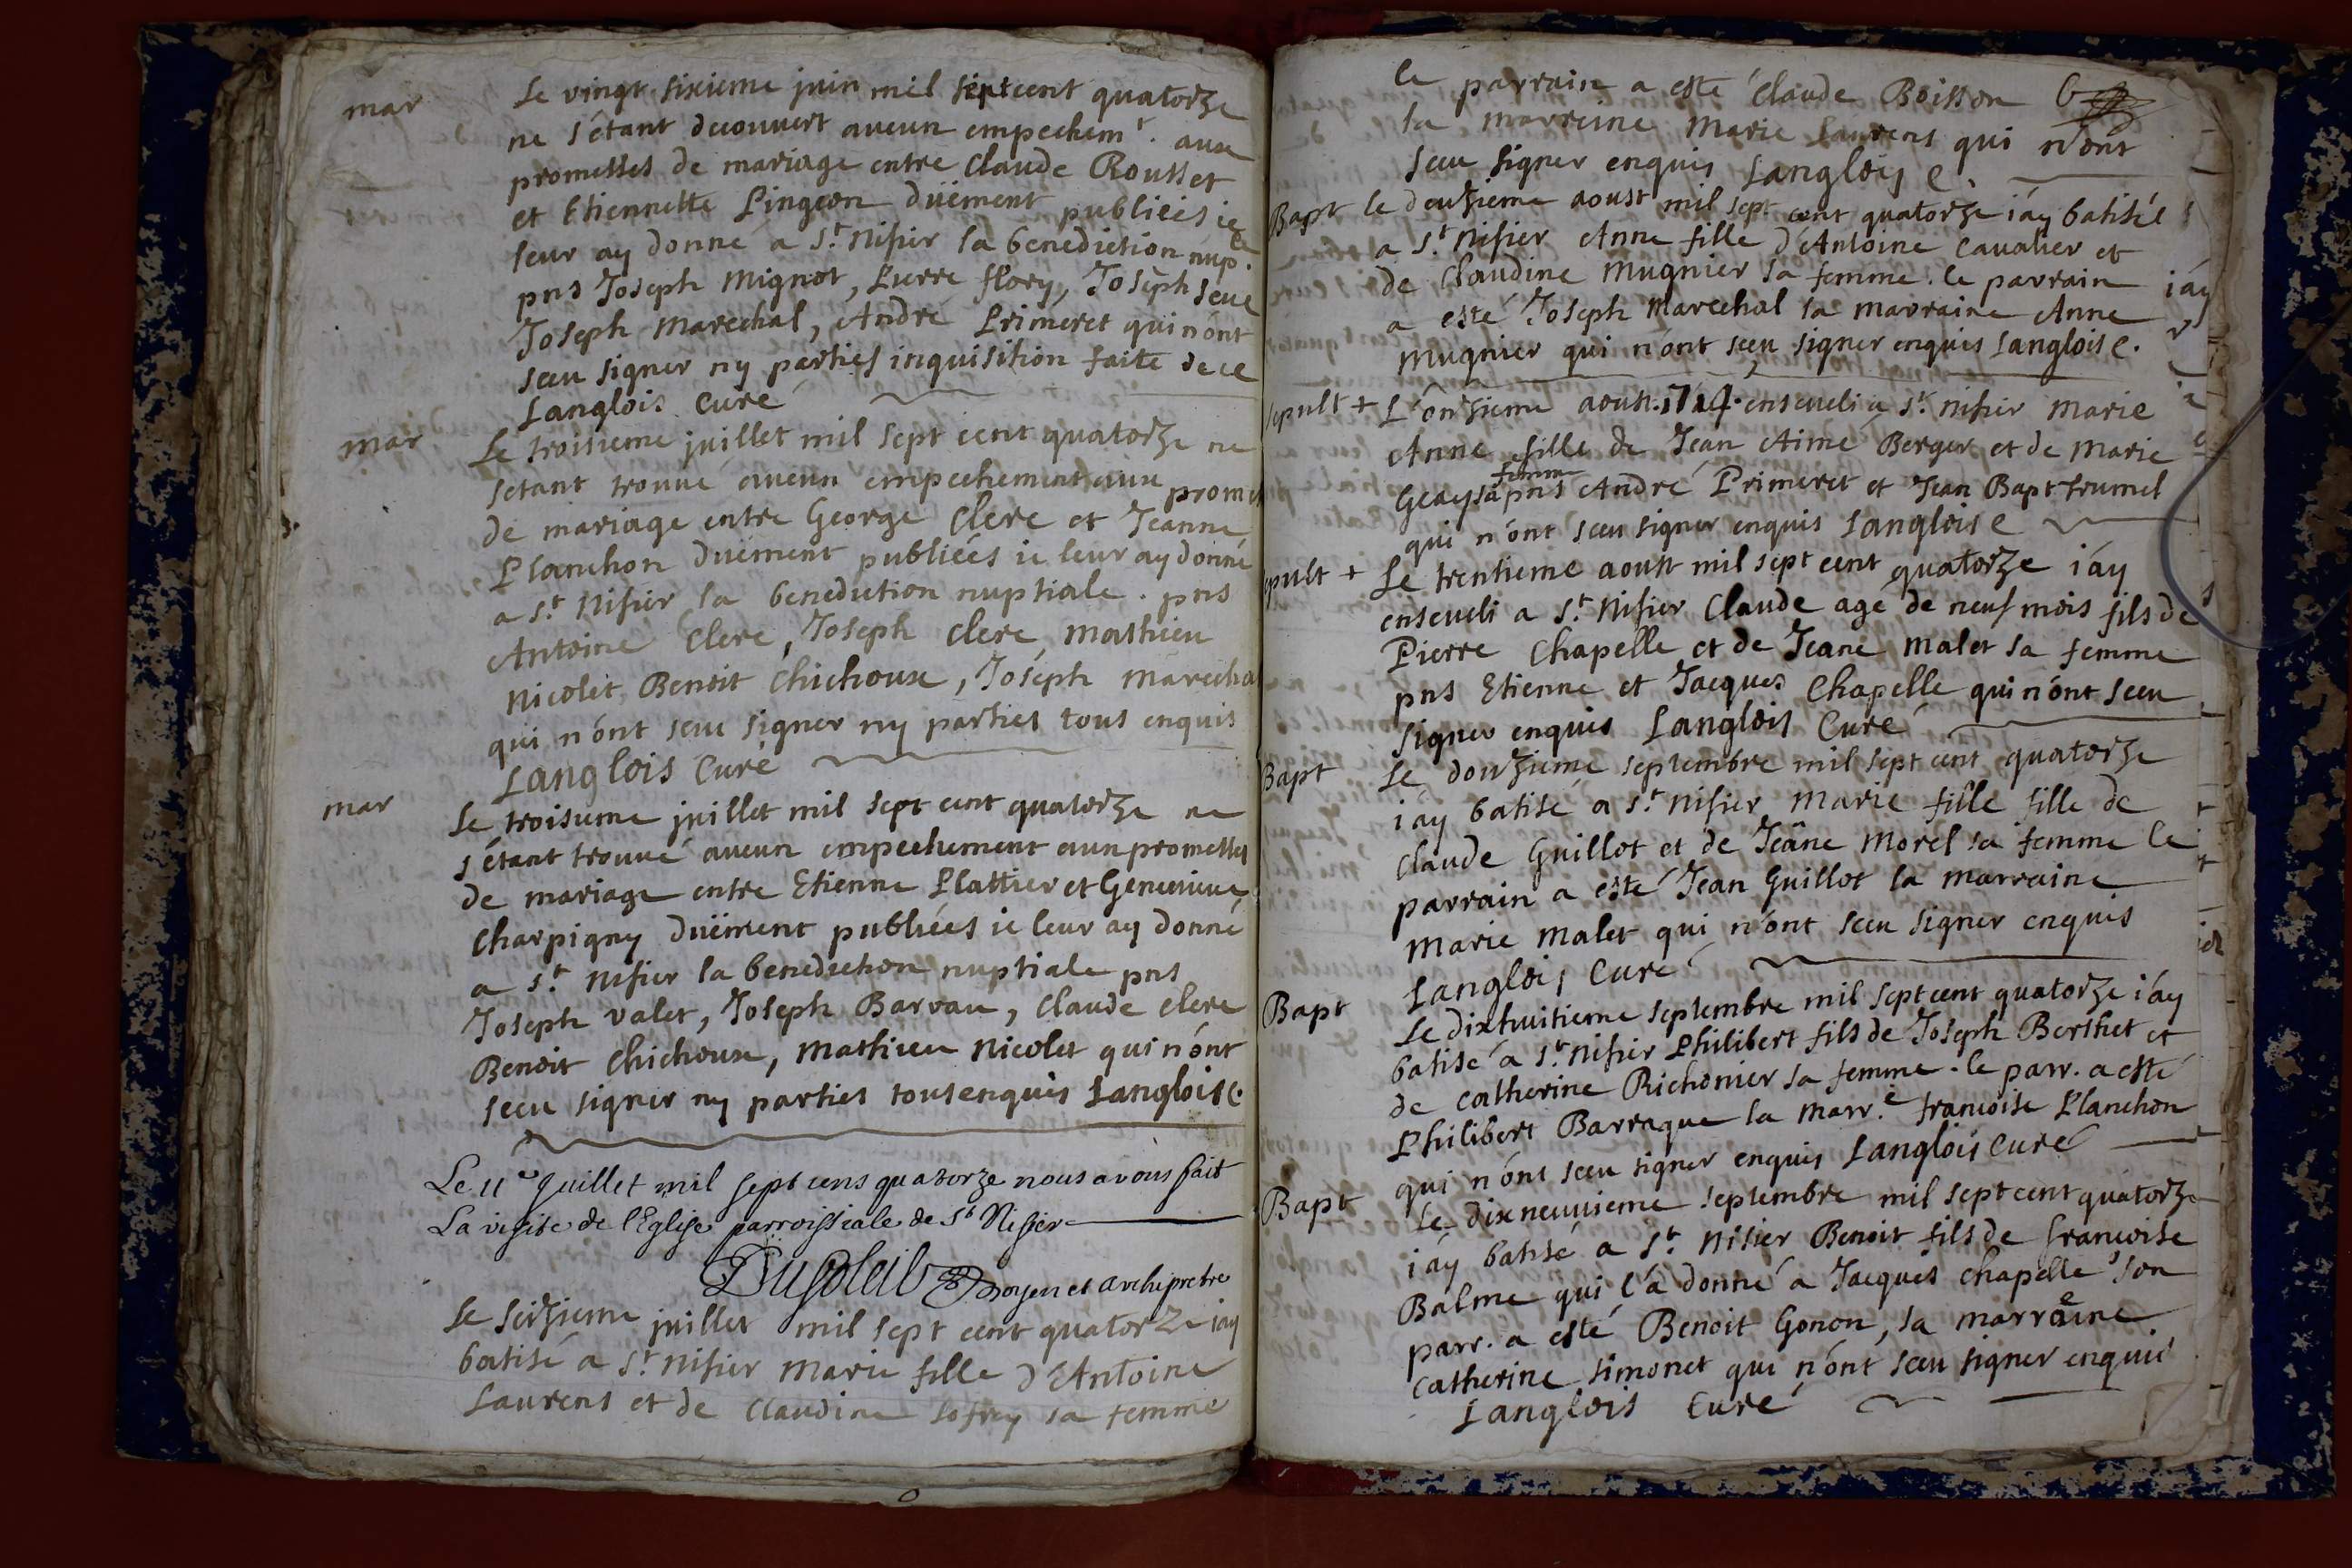 mar
Le vingt sixieme juin mil sept cent quatorze
ne s'étant decouvert aucun empechemt. aux
promesses de mariage entre Claude Rousset
et Etiennette Pingeon düement publiées ie
leur ay donné a St. Nisier la benediction nuple.
pns Joseph Mignot, Pierre flory, Joseph Seue
Joseph Marechal, André Primeret qui n'ont
sceu signer ny parties inquisition faite de ce
Langlois Curé
mar
Le troisieme juillet mil sept cent quatorze ne
setant trouué aucun empechement aux promes
de mariage entre George Clerc et Jeanne
Planchon duëment publiées ie leur ay donné
a St. Nisier la benediction nuptiale. pns
Antoine Clerc, Joseph Clerc, Mathieu
Nicolet, Benoit Chichoux, Joseph Marecha
qui n'ont sceu signer ny parties tous enquis
Langlois Curé
mar
Le troisieme juillet mil sept cent quatorze ne
s'étant trouué aucun empechement aux promesses
de mariage entre Etienne Plattier et Geneuieue
Charpigny düement publiées ie leur ay donné
a St. Nisier la benediction nuptiale pns
Joseph Valet, Joseph Barvau, Claude Clerc
Benoit Chichoux, Mathieu Nicolet qui n'ont
sceu signer ny parties tous enquis Langlois C.
Le 11e Juillet mil sept cens quatorze nous avons fait
La visite de l'Eglise parroissiale de St Nisier
Doyen et archipretre
Le seizieme juillet mil sept cent quatorze iay
batisé a St. Nisier Marie fille d'Antoine
Laurens et de Claudine Lofrey sa femme
le parrain a esté Claude Boisson
la marreine Marie Laurens qui n'ont
sceu signer enquis Langlois C.
Bapt
le deuzieme aoust mil sept cent quatorze i'ay batisé
a St. Nisier Anne fille d'Antoine Cavalier et
de Claudine Mugnier sa femme. le parrain
a esté Joseph Marechal la marraine Anne
Mugnier qui n'ont sceu signer enquis Langlois C.
sepult +
L'onzieme aoust. 1714. enseueli a St. Nisier Marie
Anne fille de Jean Aimé Berger et de Marie
Geay sa femme pns André Primeret et Jean Bapt Frumel
qui n'ont sceu signer enquis Langlois C
epult +
Le trentieme aoust mil sept cent quatorze i'ay
enseueli a St. Nisier Claude agé de neuf mois fils de
Pierre Chapelle et de Jeane Malet sa femme
pns Etienne et Jacques Chapelle qui n'ont sceu
signer enquis Langlois Curé
Bapt
Le douzieme septembre mil sept cent quatorze
i'ay batisé a St. Nisier Marie fille fille de
Claude Guillot et de Jeâne Morel sa femme le
parrain a esté Jean Guillot la marraine
Marie Malet qui n'ont sceu signer enquis
Langlois Curé
Bapt
Le dixhuitieme septembre mil sept cent quatorze i'ay
batisé a St. Nisier Philibert fils de Joseph Berthet et
de Catherine Richonier sa femme. le parr. a esté
Philibert Barraque la marr.e francoise Planchon
qui n'ont sceu signer enquis Langlois Curé
Bapt
Le dixneuuieme septembre mil sept cent quatorze
i'ay batisé a St. Nisier Benoit fils de francoise
Balme qui l'a donné a Jacques Chapelle son
parr. a esté Benoit Gonon, sa marreine
Catherine Simonet qui n'ont sceu signer enquis
Langlois Curé